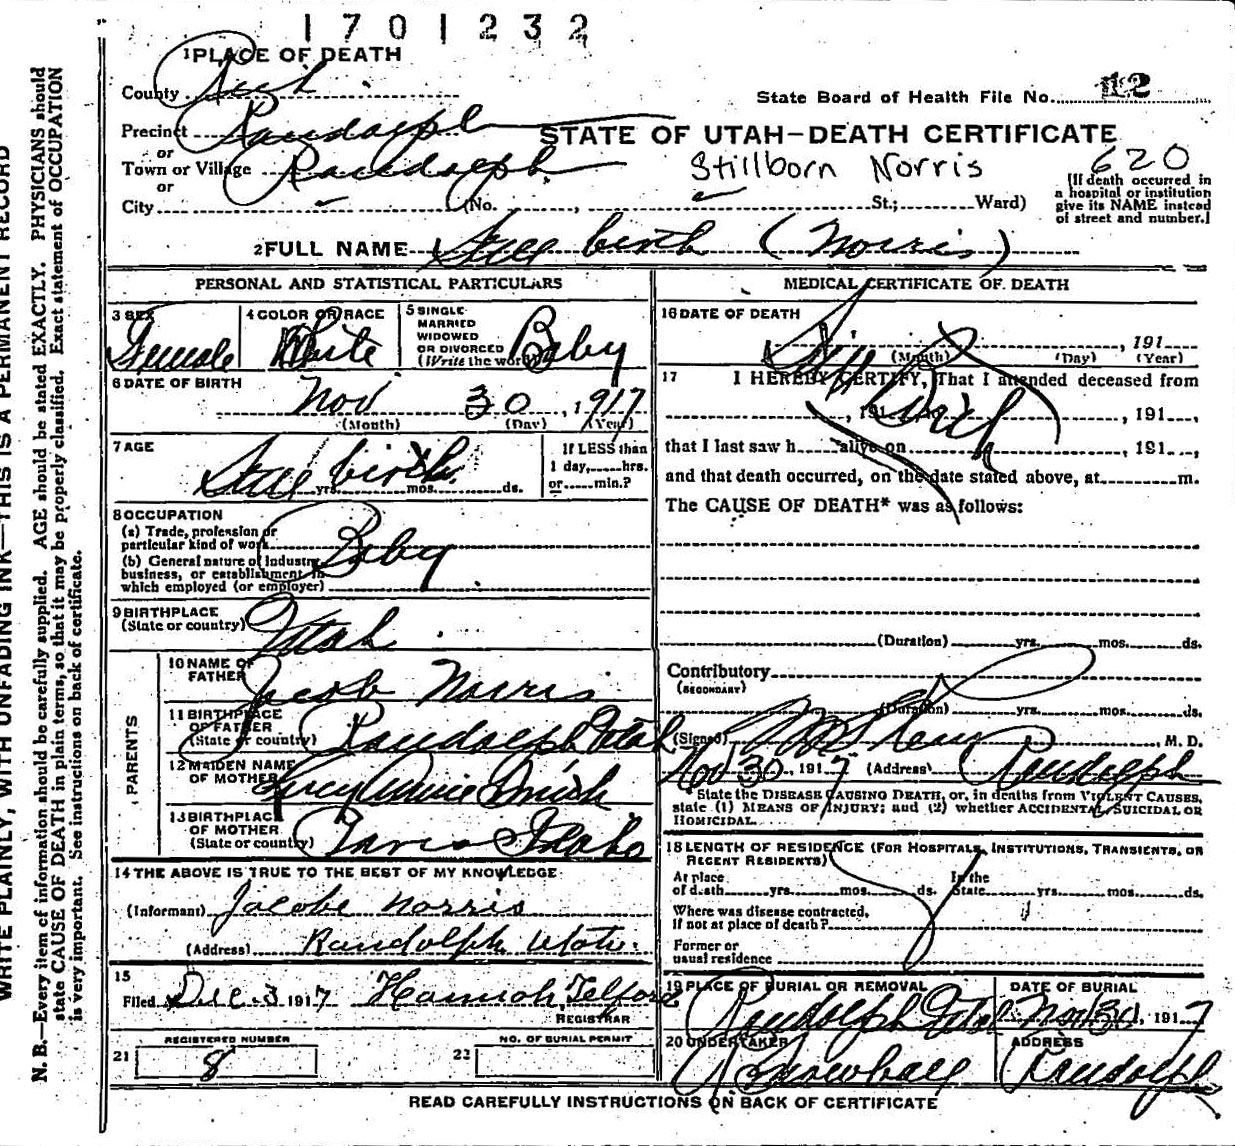 1701232
1 PLACE OF DEATH
County Rich
State Board of Health File No. 12
Precinct Randolph
or
STATE OF UTAH—DEATH CERTIFICATE
Town or Village Randolph
Stillborn Norris
620
or
City (No. , St.; Ward)
(If death occurred in
a hospital or institution
give its NAME instead
of street and number.)
2 FULL NAME Still birth (Norris)
PERSONAL AND STATISTICAL PARTICULARS
3 SEX
Female
4 COLOR OR RACE
White
5 SINGLE
MARRIED
WIDOWED
OR DIVORCED
(Write the word)
Baby
6 DATE OF BIRTH
Nov 30, 1917
(Month) (Day) (Year)
7 AGE
Still birth
yrs. mos. ds.
If LESS than
1 day, hrs.
or min.?
8 OCCUPATION
(a) Trade, profession or
particular kind of work
Baby
(b) General nature of Industry,
business, or establishment in
which employed (or employer)
9 BIRTHPLACE
(State or country)
Utah
PARENTS
10 NAME OF
FATHER
Jacob Norris
11 BIRTHPLACE
OF FATHER
(State or country)
Randolph Utah
12 MAIDEN NAME
OF MOTHER
Lucy Annie Smith
13 BIRTHPLACE
OF MOTHER
(State or country)
Paris Idaho
14 THE ABOVE IS TRUE TO THE BEST OF MY KNOWLEDGE
(Informant) Jacobe Norris
(Address) Randolph Utah
15
Filed Dec. 3 1917 Hannah Telford
REGISTRAR
21
REGISTERED NUMBER
8
22
NO. OF BURIAL PERMIT
MEDICAL CERTIFICATE OF DEATH
16 DATE OF DEATH
Still Birth
, 191
(Month) (Day) (Year)
17 I HEREBY CERTIFY, That I attended deceased from
, 191 , 191 ,
that I last saw h alive on , 191 ,
and that death occurred, on the date stated above, at m.
The CAUSE OF DEATH* was as follows:
(Duration) yrs. mos. ds.
Contributory
(SECONDARY)
(Duration) yrs. mos. ds.
(Signed) , M. D.
Nov 30, 1917 (Address) Randolph
*State the DISEASE CAUSING DEATH, or, in deaths from VIOLENT CAUSES,
state (1) MEANS OF INJURY; and (2) whether ACCIDENTAL, SUICIDAL OR
HOMICIDAL.
18 LENGTH OF RESIDENCE (FOR HOSPITALS, INSTITUTIONS, TRANSIENTS, OR
RECENT RESIDENTS)
At place
of death yrs. mos. ds.
In the
State yrs. mos. ds.
Where was disease contracted,
If not at place of death?
Former or
usual residence
19 PLACE OF BURIAL OR REMOVAL
Randolph Utah
DATE OF BURIAL
Nov 30, 1917
20 UNDERTAKER
ADDRESS
Randolph
READ CAREFULLY INSTRUCTIONS ON BACK OF CERTIFICATE
WRITE PLAINLY, WITH UNFADING INK—THIS IS A PERMANENT RECORD
N. B.—Every item of information should be carefully supplied. AGE should be stated EXACTLY. PHYSICIANS should
state CAUSE OF DEATH in plain terms, so that it may be properly classified. Exact statement of OCCUPATION
is very important. See instructions on back of certificate.